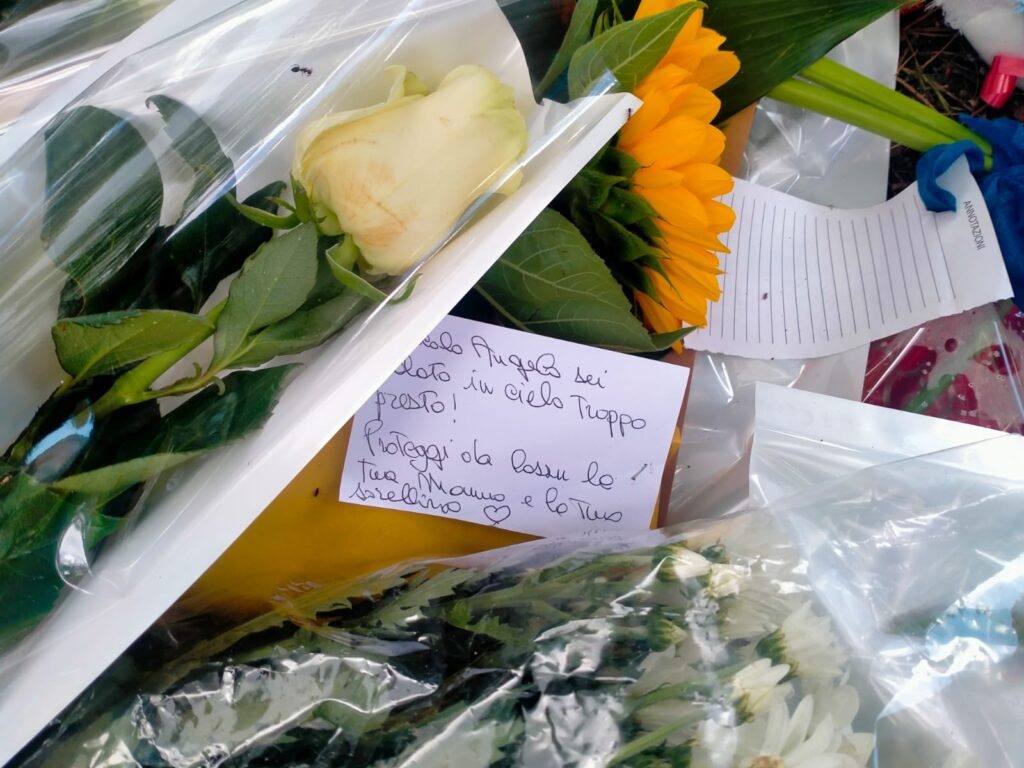 Angelo sei
in cielo troppo
presto!
Proteggi da lassu la
tua Mamma e la tua
sorellina
ANNOTAZIONI